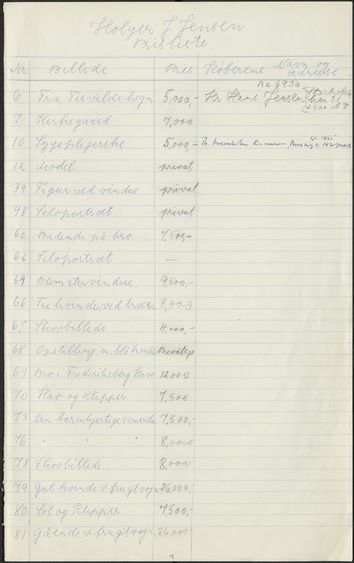 Holger J Jensen
Prisliste.
Nr. Billede Pris Køberens Navn og adresse
6 Fra Tisvilde hegn 5,000,- Hr. Hans Jensen
7 Kirkegaard 7,000
10 Sygeplejerske 5,000 -
12 Model privat
39 Figur ved vindue privat
48 Selvportræt privat
60 Badende på bro 7,500,-
62 Selvportræt —
64 Blomster vindue 9500,-
66 Tre kvinder ved træer
67 Skovbillede 4,000,-
68 Opstilling m. blå
69 Bro i Frederiksberg Have 12000
70 Hav og Klipper 7,500
73 Den barmhjertige 7,500,-
76 " " " 8,0000
78 Skovbillede 8,000
79 Gul kvinde v. frugtvogn 26,000,-
80 Sol og Klipper 7,500,-
81 Gående v. frugtvogn 26000